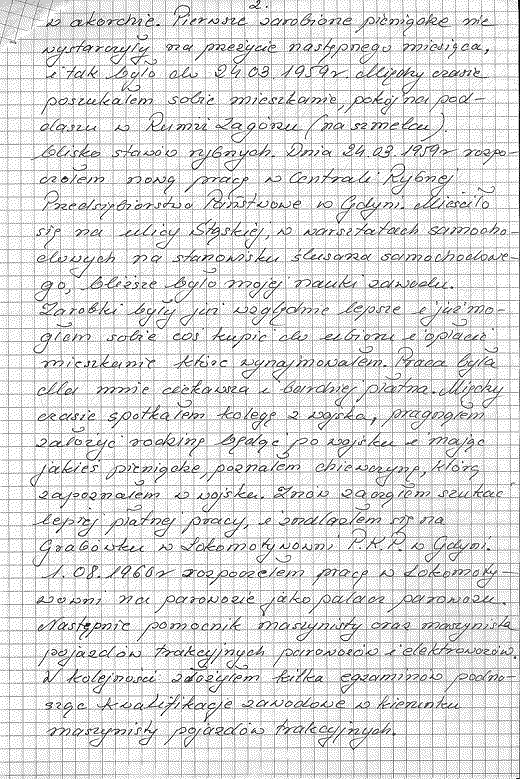 2.
w akorchie. Pierwsze zarobione pieniądze nie
wystarczyły na przeżycie następnego miesiąca,
i tak było do 24.03.1959r. Między czasie
poszukałem sobie mieszkanie, pokój na pod-
daszu w Rumii Zagórzu (na szmelcu).
blisko stawów rybnych. Dnia 24.03.1959r rozpo-
cząłem nową pracę w Centrali Rybnej
Przedsiębiorstwo Państwowe w Gdyni. Mieściło
się na ulicy Śląskiej, w warsztatach samocho-
dowych na stanowisku ślusarza samochodowe-
go, bliższe było mojej nauki zawodu.
Zarobki były już względnie lepsze i już mo-
głem sobie coś kupić do ubioru i opłacić
mieszkanie które wynajmowałem. Praca była
dla mnie ciekawsza i bardziej płatna. Między
czasie spotkałem kolegę z wojska, pragnąłem
założyć rodzinę będąc po wojsku i mając
jakieś pieniądze, poznałem dziewczynę, którą
zapoznałem w wojsku. Znów zacząłem szukać
lepiej płatnej pracy, i znalazłem się na
Grabówku w Lokomotywowni P.K.P. w Gdyni.
1.08.1960r rozpocząłem pracę w Lokomoty-
wowni na parowozie jako palacz parowozu.
Następnie pomocnik maszynisty oraz maszynista
pojazdów trakcyjnych parowozów i elektrowozów.
W kolejności złożyłem kilka egzaminów podno-
sząc kwalifikacje zawodowe w kierunku
maszynisty pojazdów trakcyjnych.